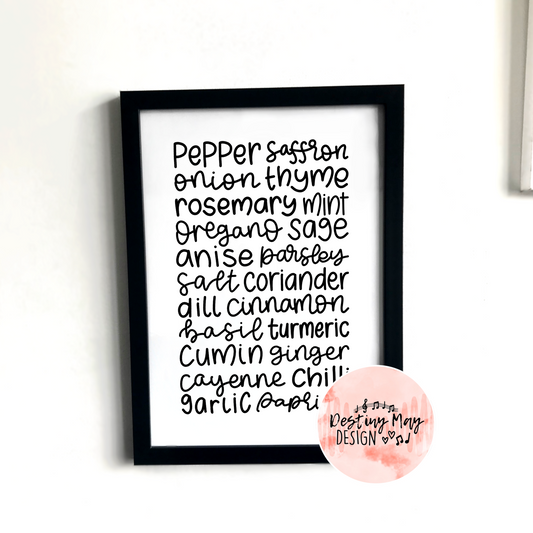 pepper saffron
onion thyme
rosemary mint
oregano sage
anise parsley
salt coriander
dill cinnamon
basil turmeric
cumin ginger
cayenne
garlic
Destiny May
DESIGN